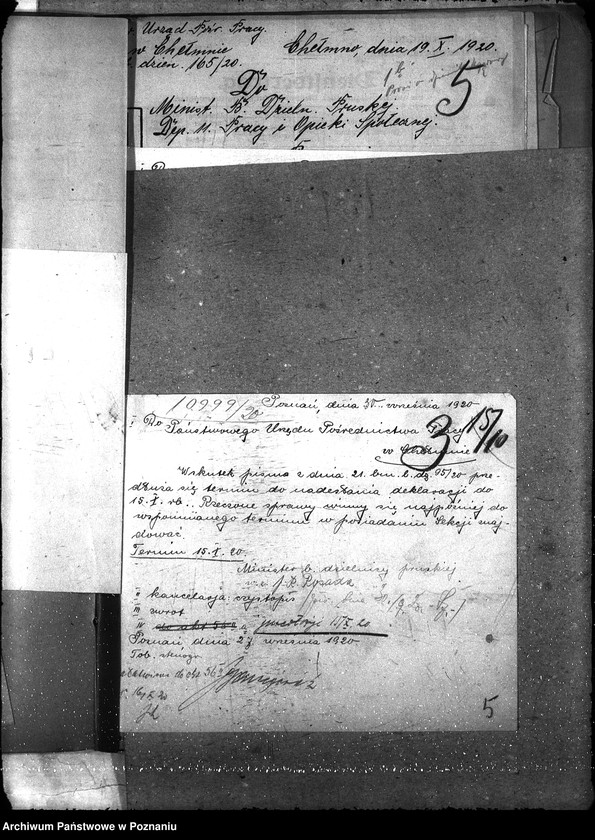 Urząd Pśr. Pracy.
w Chełmnie
dzien. 165/20.
Chełmno, dnia 19. X. 1920.
5
Do
Minist. B. Dzieln. Pruskiej
Dep. 11. Pracy i Opieki Społecznej.
10999/20
Poznań, dnia 30. września 1920
15/10
I Do Państwowego Urzędu Pośrednictwa Pracy
3
w Chełmnie
Wskutek pisma z dnia 21. bm. l. dz. 95/20 prze-
dłuża się termin do nadesłania deklaracji do
15. X. rb. Rzeczone sprawy winny się najpóźniej do
wspomnianego terminu w posiadaniu Sekcji znaj-
dować.
Termin 15. X. 20.
Minister b. dzielnicy pruskiej
II kancelarja: czystopis
III zwrot
IV do akt
15/X. 20
Poznań dnia 27. września 1920
5
Archiwum Państwowe w Poznaniu